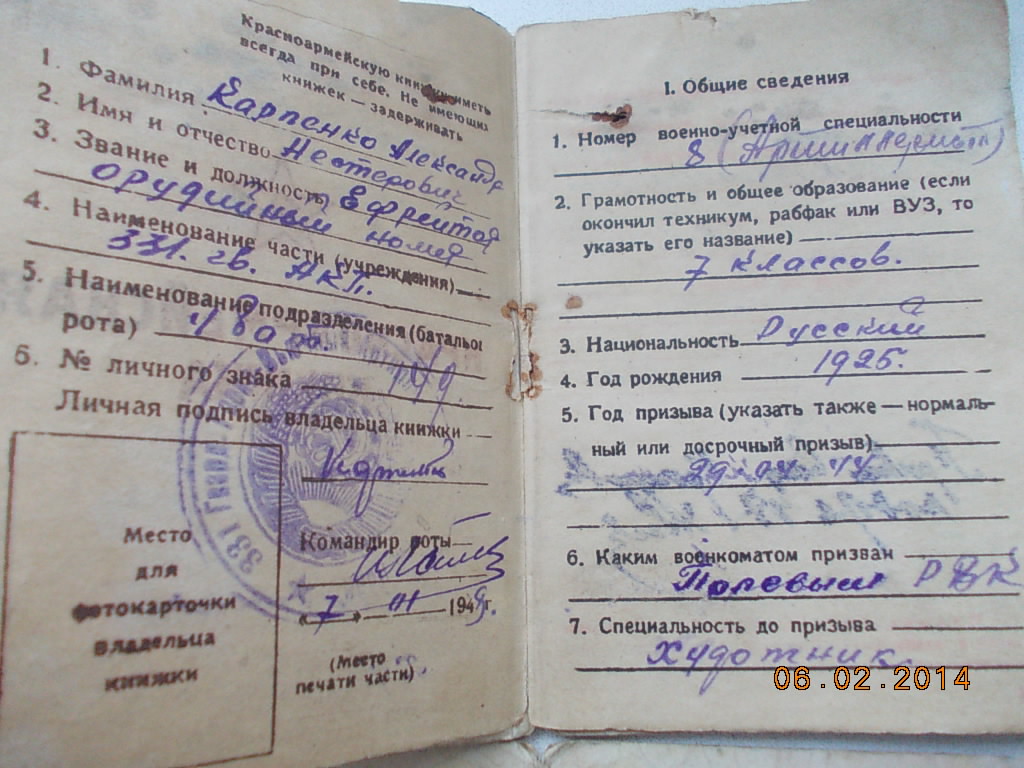 Красноармейскую книжку иметь
всегда при себе. Не имеющих
книжек — задерживать
1. Фамилия Карпенко Александр
2. Имя и отчество Нестерович
3. Звание и должность Ефрейтор
орудийный номер
4. Наименование части (учреждения)
331. гв. АКП.
5. Наименование подразделения (батальон
рота)
6. № личного знака
Личная подпись владельца книжки
Место
для
фотокарточки
владельца
книжки
Командир роты
«7» 01 1945г.
(Место
печати части)
331
I. Общие сведения
1. Номер военно-учетной специальности
8 (Артиллерист)
2. Грамотность и общее образование (если
окончил техникум, рабфак или ВУЗ, то
указать его название)
7 классов.
3. Национальность Русский
4. Год рождения 1925.
5. Год призыва (указать также — нормаль-
ный или досрочный призыв)
29-04-44
6. Каким военкоматом призван
Полевым РВК
7. Специальность до призыва
Художник.
06.02.2014